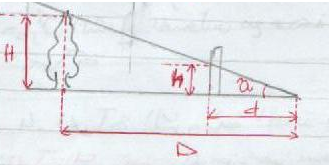 H
h
a
d
D